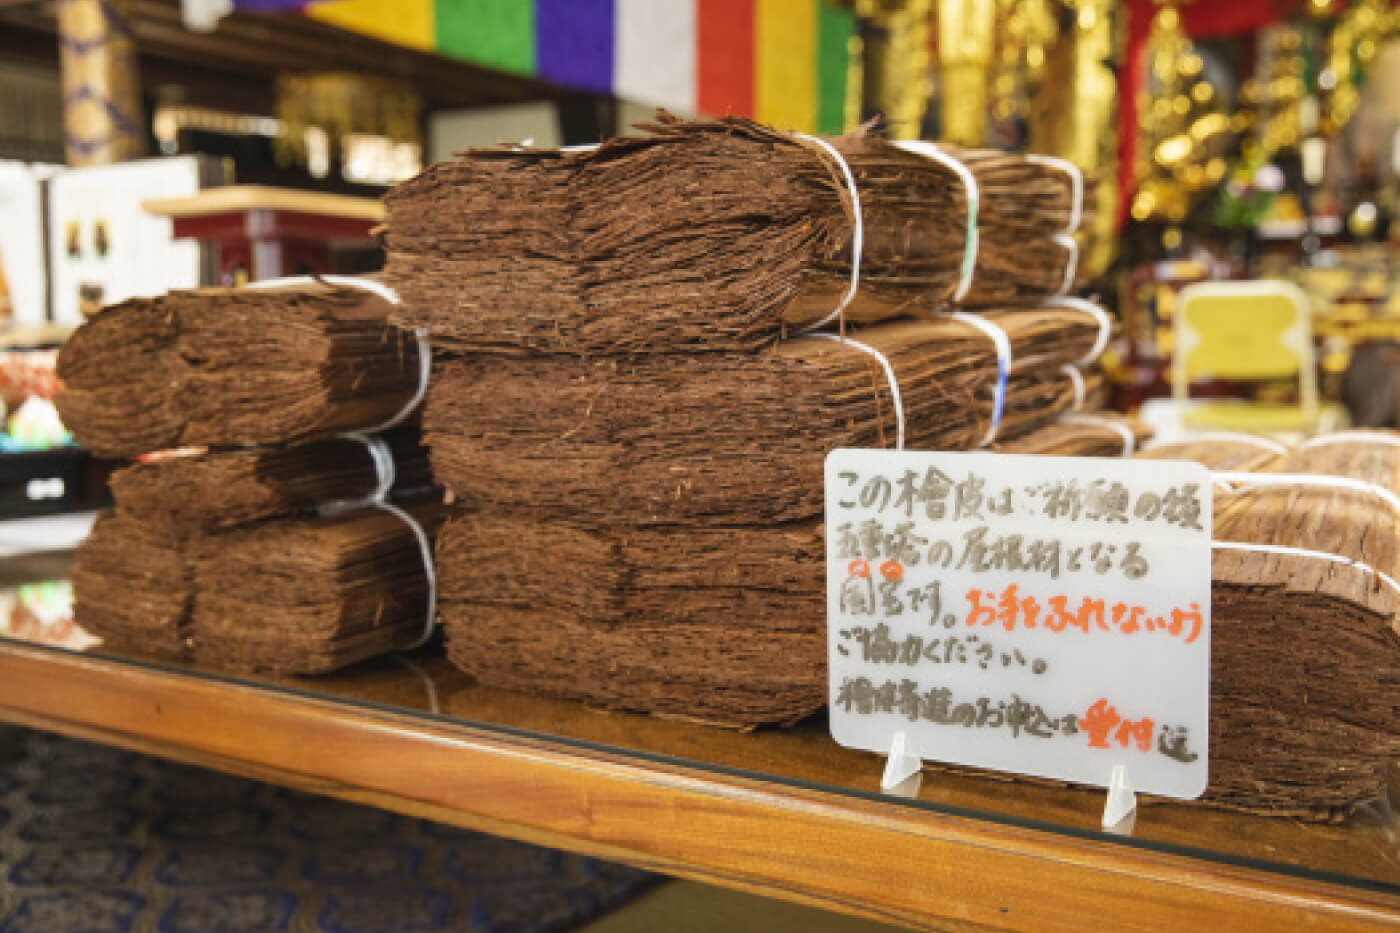 この木檜皮はご祈願の後
五重塔の屋根材となる
国宝です。お手をふれないよう
ご協力ください。
檜皮寄進のお申込は受付迄